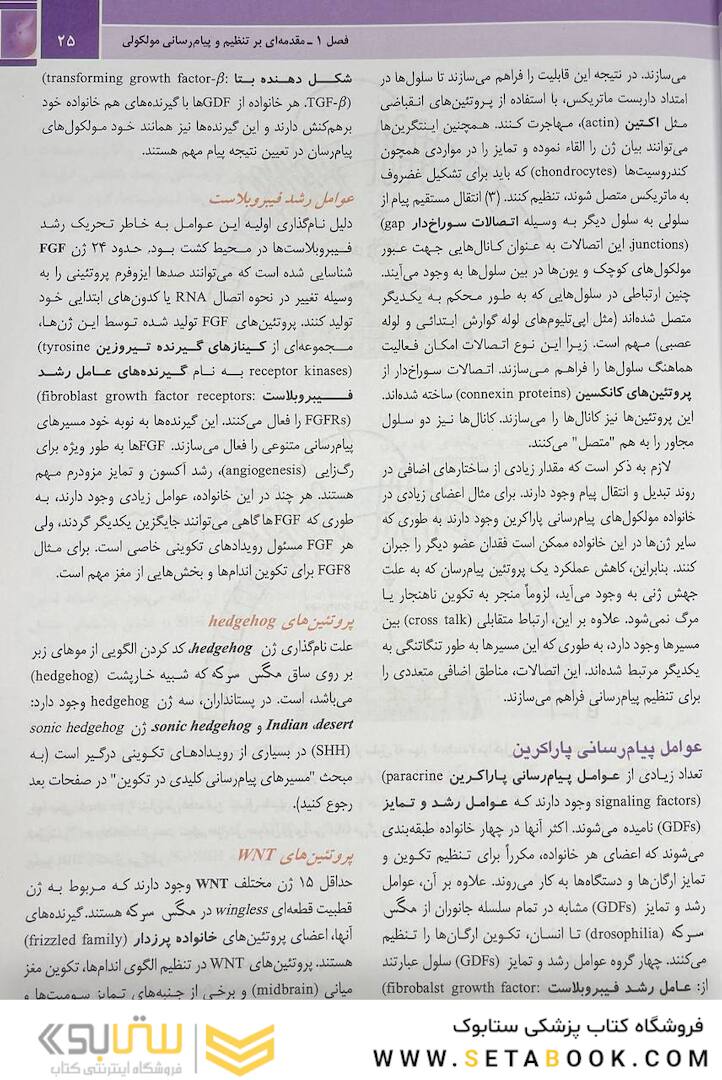 فصل ۱ ـ مقدمه‌ای بر تنظیم و پیام‌رسانی مولکولی
۲۵
می‌سازند. در نتیجه این قابلیت را فراهم می‌سازند تا سلول‌ها در
امتداد داربست ماتریکس، با استفاده از پروتئین‌های انقباضی
مثل اکتین (actin)، مهاجرت کنند. همچنین اینتگرین‌ها
می‌توانند بیان ژن را القاء نموده و تمایز را در مواردی همچون
کندروسیت‌ها (chondrocytes) که باید برای تشکیل غضروف
به ماتریکس متصل شوند، تنظیم کنند. (۳) انتقال مستقیم پیام از
سلولی به سلول دیگر به وسیله اتصالات سوراخ‌دار (gap
junctions). این اتصالات به عنوان کانال‌هایی جهت عبور
مولکول‌های کوچک و یون‌ها در بین سلول‌ها به وجود می‌آیند.
چنین ارتباطی در سلول‌هایی که به طور محکم به یکدیگر
متصل شده‌اند (مثل اپی‌تلیوم‌های لوله گوارش ابتدائی و لوله
عصبی) مهم است. زیرا این نوع اتصالات امکان فعالیت
هماهنگ سلول‌ها را فراهم می‌سازند. اتصالات سوراخ‌دار از
پروتئین‌های کانکسین (connexin proteins) ساخته شده‌اند.
این پروتئین‌ها نیز کانال‌ها را می‌سازند. کانال‌ها نیز دو سلول
مجاور را به هم "متصل" می‌کنند.
لازم به ذکر است که مقدار زیادی از ساختارهای اضافی در
روند تبدیل و انتقال پیام وجود دارند. برای مثال اعضای زیادی در
خانواده مولکول‌های پیام‌رسانی پاراکرین وجود دارند به طوری که
سایر ژن‌ها در این خانواده ممکن است فقدان عضو دیگر را جبران
کنند. بنابراین، کاهش عملکرد یک پروتئین پیام‌رسان که به علت
جهش ژنی به وجود می‌آید، لزوماً منجر به تکوین ناهنجار یا
مرگ نمی‌شود. علاوه بر این، ارتباط متقابلی (cross talk) بین
مسیرها وجود دارد، به طوری که این مسیرها به طور تنگاتنگی به
یکدیگر مرتبط شده‌اند. این اتصالات، مناطق اضافی متعددی را
برای تنظیم پیام‌رسانی فراهم می‌سازند.
عوامل پیام‌رسانی پاراکرین
تعداد زیادی از عوامل پیام‌رسانی پاراکرین (paracrine
signaling factors) وجود دارند که عوامل رشد و تمایز
(GDFs) نامیده می‌شوند. اکثر آنها در چهار خانواده طبقه‌بندی
می‌شوند که اعضای هر خانواده، مکرراً برای تنظیم تکوین و
تمایز ارگان‌ها و دستگاه‌ها به کار می‌روند. علاوه بر آن، عوامل
رشد و تمایز (GDFs) مشابه در تمام سلسله جانوران از مگس
سرکه (drosophilia) تا انسان، تکوین ارگان‌ها را تنظیم
می‌کنند. چهار گروه عوامل رشد و تمایز (GDFs) سلول عبارتند
از: عامل رشد فیبروبلاست (fibrobalst growth factor:
شکل دهنده بتا (transforming growth factor-β:
TGF-β). هر خانواده از GDFها با گیرنده‌های هم خانواده خود
برهم‌کنش دارند و این گیرنده‌ها نیز همانند خود مولکول‌های
پیام‌رسان در تعیین نتیجه پیام مهم هستند.
عوامل رشد فیبروبلاست
دلیل نام‌گذاری اولیه این عوامل به خاطر تحریک رشد
فیبروبلاست‌ها در محیط کشت بود. حدود ۲۴ ژن FGF
شناسایی شده است که می‌توانند صدها ایزوفرم پروتئینی را به
وسیله تغییر در نحوه اتصال RNA یا کدون‌های ابتدایی خود
تولید کنند. پروتئین‌های FGF تولید شده توسط این ژن‌ها،
مجموعه‌ای از کینازهای گیرنده تیروزین (tyrosine
receptor kinases) به نام گیرنده‌های عامل رشد
فیبروبلاست (fibroblast growth factor receptors:
FGFRs) را فعال می‌کنند. این گیرنده‌ها به نوبه خود مسیرهای
پیام‌رسانی متنوعی را فعال می‌سازند. FGFها به طور ویژه برای
رگ‌زایی (angiogenesis)، رشد آکسون و تمایز مزودرم مهم
هستند. هر چند در این خانواده، عوامل زیادی وجود دارند، به
طوری که FGFها گاهی می‌توانند جایگزین یکدیگر گردند، ولی
هر FGF مسئول رویدادهای تکوینی خاصی است. برای مثال
FGF8 برای تکوین اندام‌ها و بخش‌هایی از مغز مهم است.
پروتئین‌های hedgehog
علت نام‌گذاری ژن hedgehog، کد کردن الگویی از موهای زبر
بر روی ساق مگس سرکه که شبیه خارپشت (hedgehog)
می‌باشد، است. در پستانداران، سه ژن hedgehog وجود دارد:
Indian ،desert و sonic hedgehog. ژن sonic hedgehog
(SHH) در بسیاری از رویدادهای تکوینی درگیر است (به
مبحث "مسیرهای پیام‌رسانی کلیدی در تکوین" در صفحات بعد
رجوع کنید).
پروتئین‌های WNT
حداقل ۱۵ ژن مختلف WNT وجود دارند که مربوط به ژن
قطبیت قطعه‌ای wingless در مگس سرکه هستند. گیرنده‌های
آنها، اعضای پروتئین‌های خانواده پرزدار (frizzled family)
هستند. پروتئین‌های WNT در تنظیم الگوی اندام‌ها، تکوین مغز
میانی (midbrain) و برخی از جنبه‌های تمایز سومیت‌ها و
فروشگاه کتاب پزشکی ستابوک
WWW.SETABOOK.COM
ستابوک
فروشگاه اینترنتی کتاب